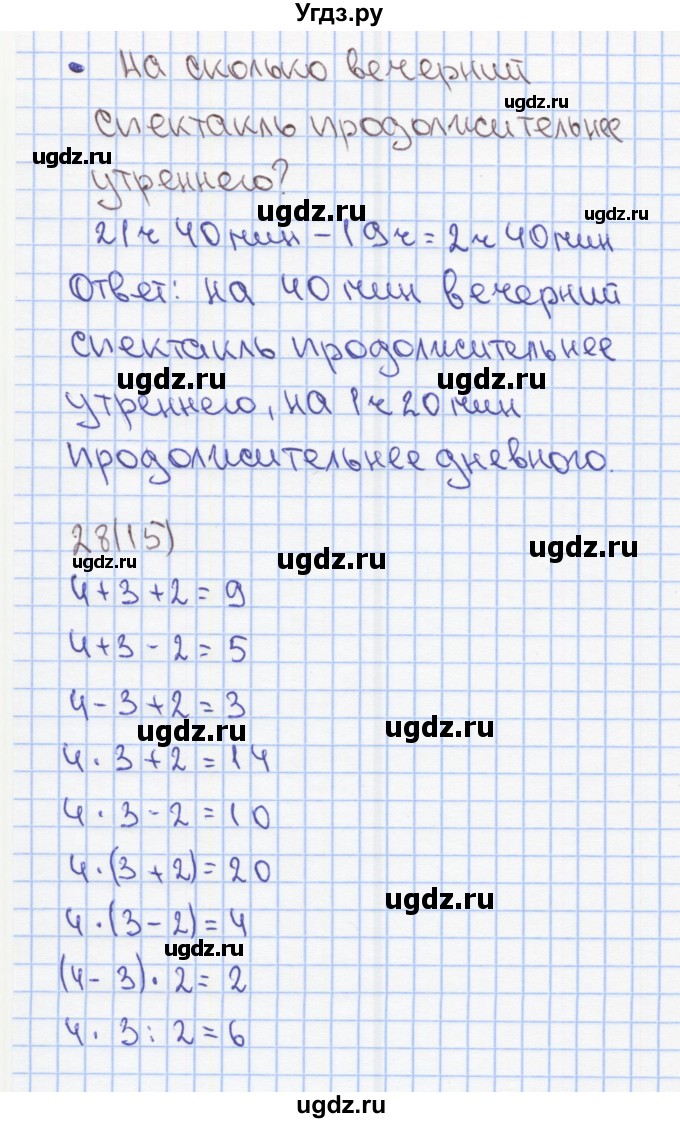 Угдз.ру
• На сколько вечерний
спектакль продолжительнее
утреннего?
21ч 40мин - 19ч = 2ч 40мин
Ответ: на 40мин вечерний
спектакль продолжительнее
утреннего, на 1ч 20мин
продолжительнее дневного.
28(15)
4+3+2=9
4+3-2=5
4-3+2=3
4·3+2=14
4·3-2=10
4·(3+2)=20
4·(3-2)=4
(4-3)·2=2
4·3:2=6
ugdz.ru
ugdz.ru
ugdz.ru
ugdz.ru
ugdz.ru
ugdz.ru
ugdz.ru
ugdz.ru
ugdz.ru
ugdz.ru
ugdz.ru
ugdz.ru
ugdz.ru
ugdz.ru